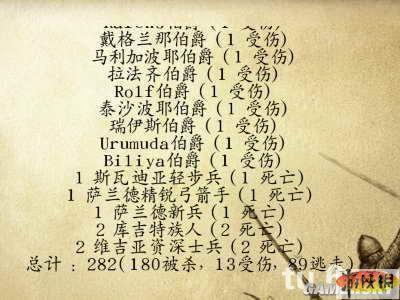 戴格兰那伯爵 (1 受伤)
马利加波耶伯爵 (1 受伤)
拉法齐伯爵 (1 受伤)
Rolf伯爵 (1 受伤)
泰沙波耶伯爵 (1 受伤)
瑞伊斯伯爵 (1 受伤)
Urumuda伯爵 (1 受伤)
Biliya伯爵 (1 受伤)
1 斯瓦迪亚轻步兵 (1 死亡)
1 萨兰德精锐弓箭手 (1 死亡)
1 萨兰德新兵 (1 死亡)
2 库吉特族人 (2 死亡)
2 维吉亚资深士兵 (2 死亡)
总计 : 282(180被杀,13受伤,89逃走)